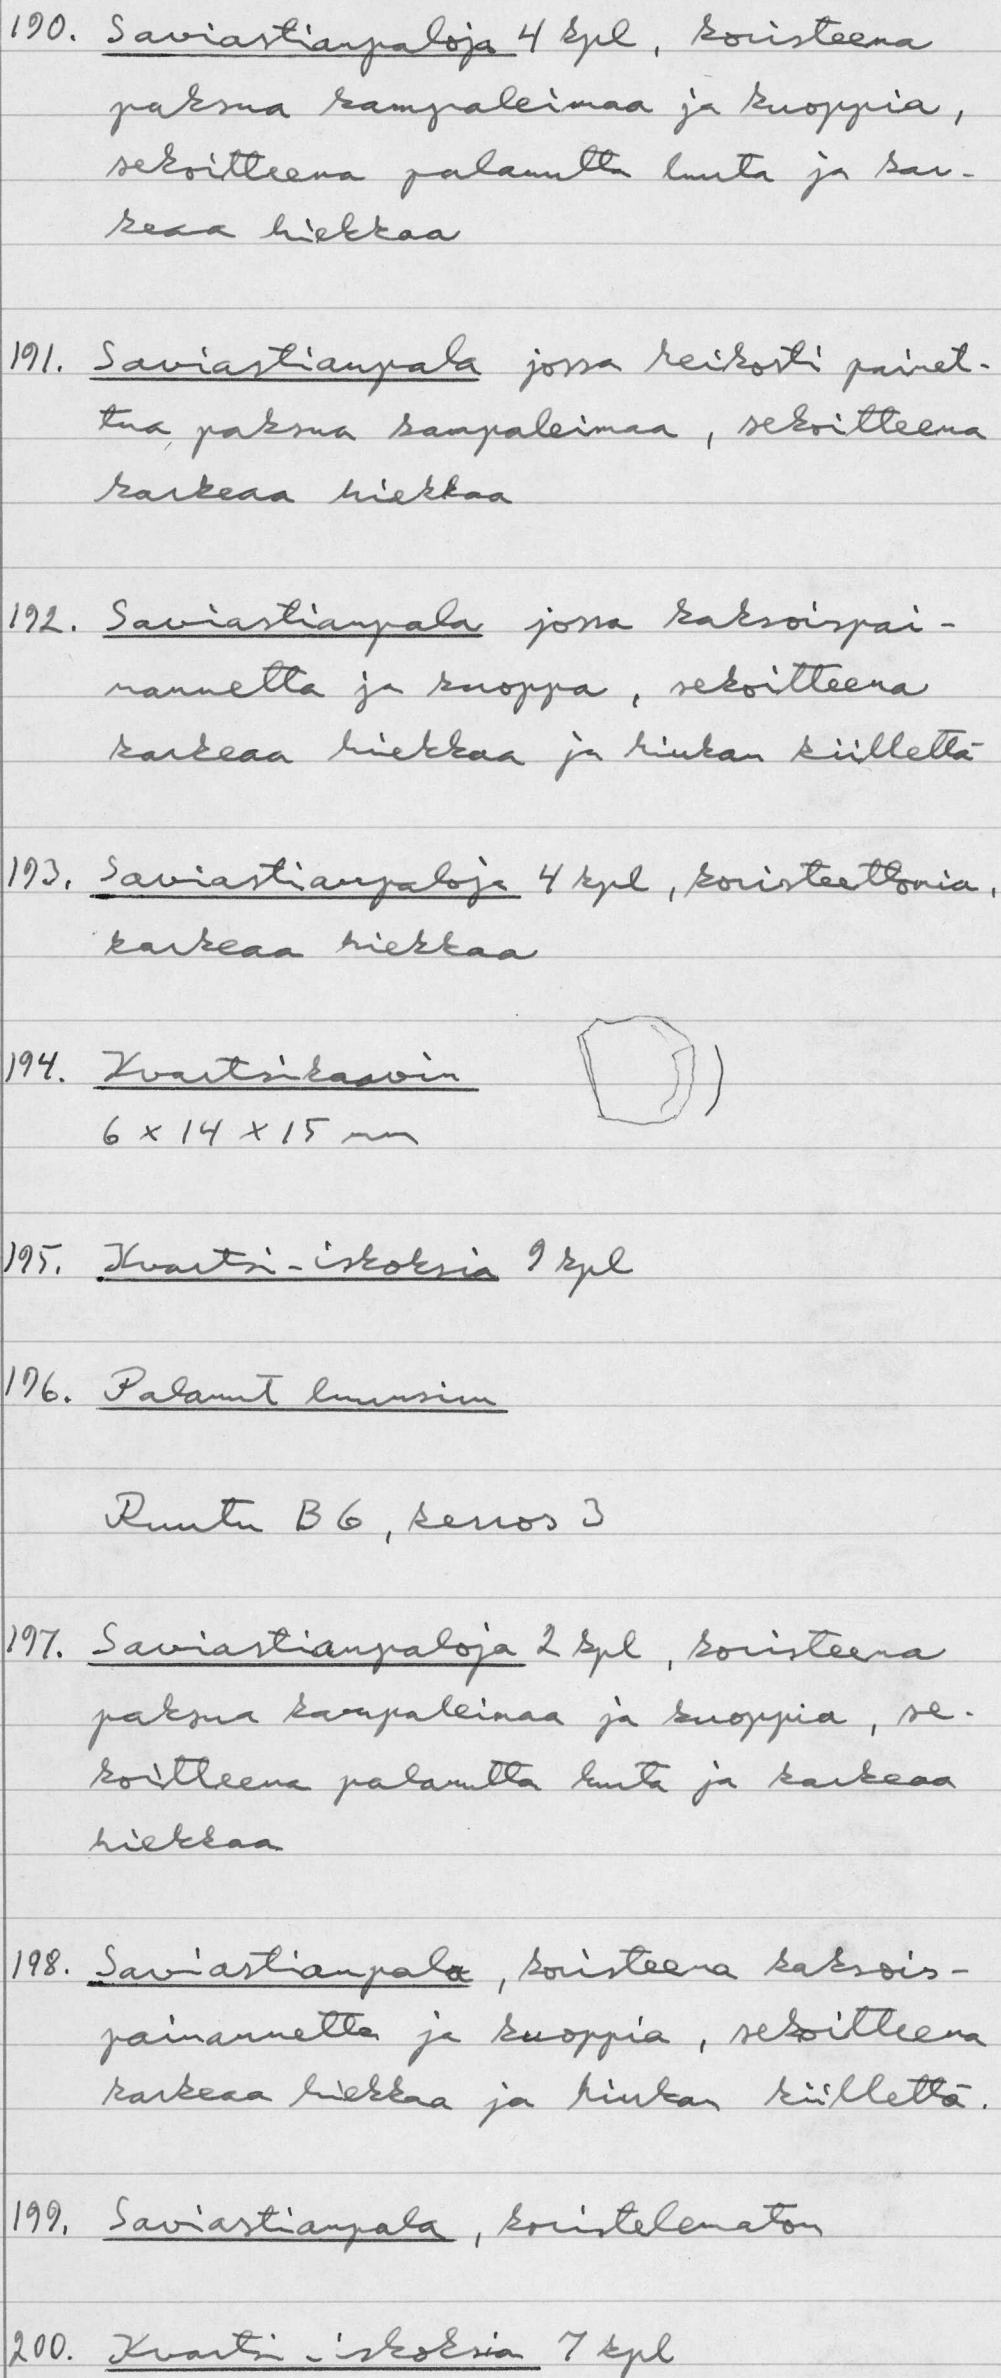 190. Saviastianpaloja 4 kpl, koristeena
paksua kampaleimaa ja kuoppia,
sekoitteena palanutta luuta ja kar-
keaa hiekkaa
191. Saviastianpala jossa heikosti painet-
tua paksua kampaleimaa, sekoitteena
karkeaa hiekkaa
192. Saviastianpala jossa kaksoispai-
nannetta ja kuoppa, sekoitteena
karkeaa hiekkaa ja hiukan kiillettä
193. Saviastianpaloja 4 kpl, koristeettomia,
karkeaa hiekkaa
194. Kvartsikaavin
6 x 14 x 15 mm
195. Kvartsi-iskoksia 9 kpl
196. Palanut luunsiru
Ruutu B6, kerros 3
197. Saviastianpaloja 2 kpl, koristeena
paksua kampaleimaa ja kuoppia, se-
koitteena palanutta luuta ja karkeaa
hiekkaa
198. Saviastianpala, koristeena kaksois-
painannetta ja kuoppia, sekoitteena
karkeaa hiekkaa ja hiukan kiillettä.
199. Saviastianpala, koristelematon
200. Kvartsi-iskoksia 7 kpl